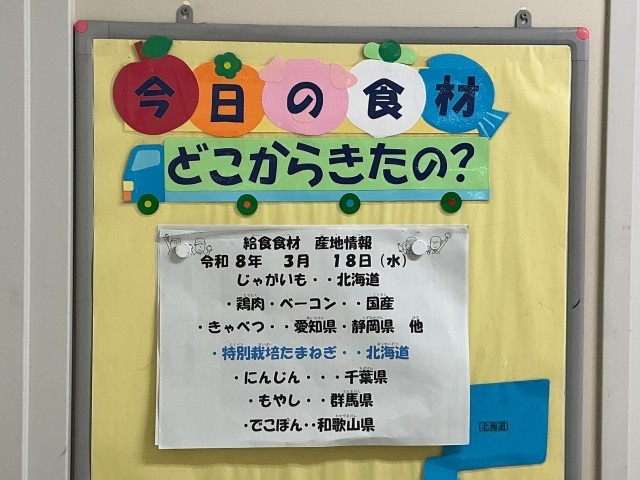 今日の食材
どこからきたの?
給食食材 産地情報
令和 8年 3月 18日(水)
じゃがいも・・北海道
・鶏肉・ベーコン・・国産
・きゃべつ・・愛知県・静岡県 他
・特別栽培たまねぎ・・北海道
・にんじん・・・千葉県
・もやし・・群馬県
・でこぽん・・和歌山県
[北海道]